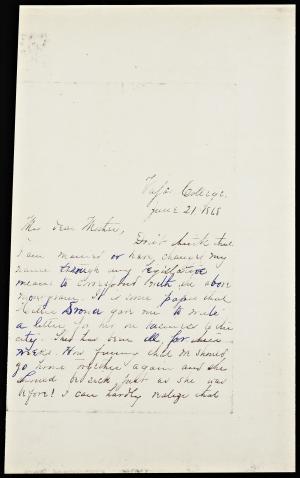 Vassar College.
June 21 1868
My dear Mother,
Don't think that
I am married or have changed my
name through any legislative
means to correspond with the above
monogram. It is some paper that
Hattie gave me to write
a letter for her on business to the
city. She has been ill for two
weeks. How funny that we should
go home together again and she
should be sick just as she was
before! I can hardly realize that